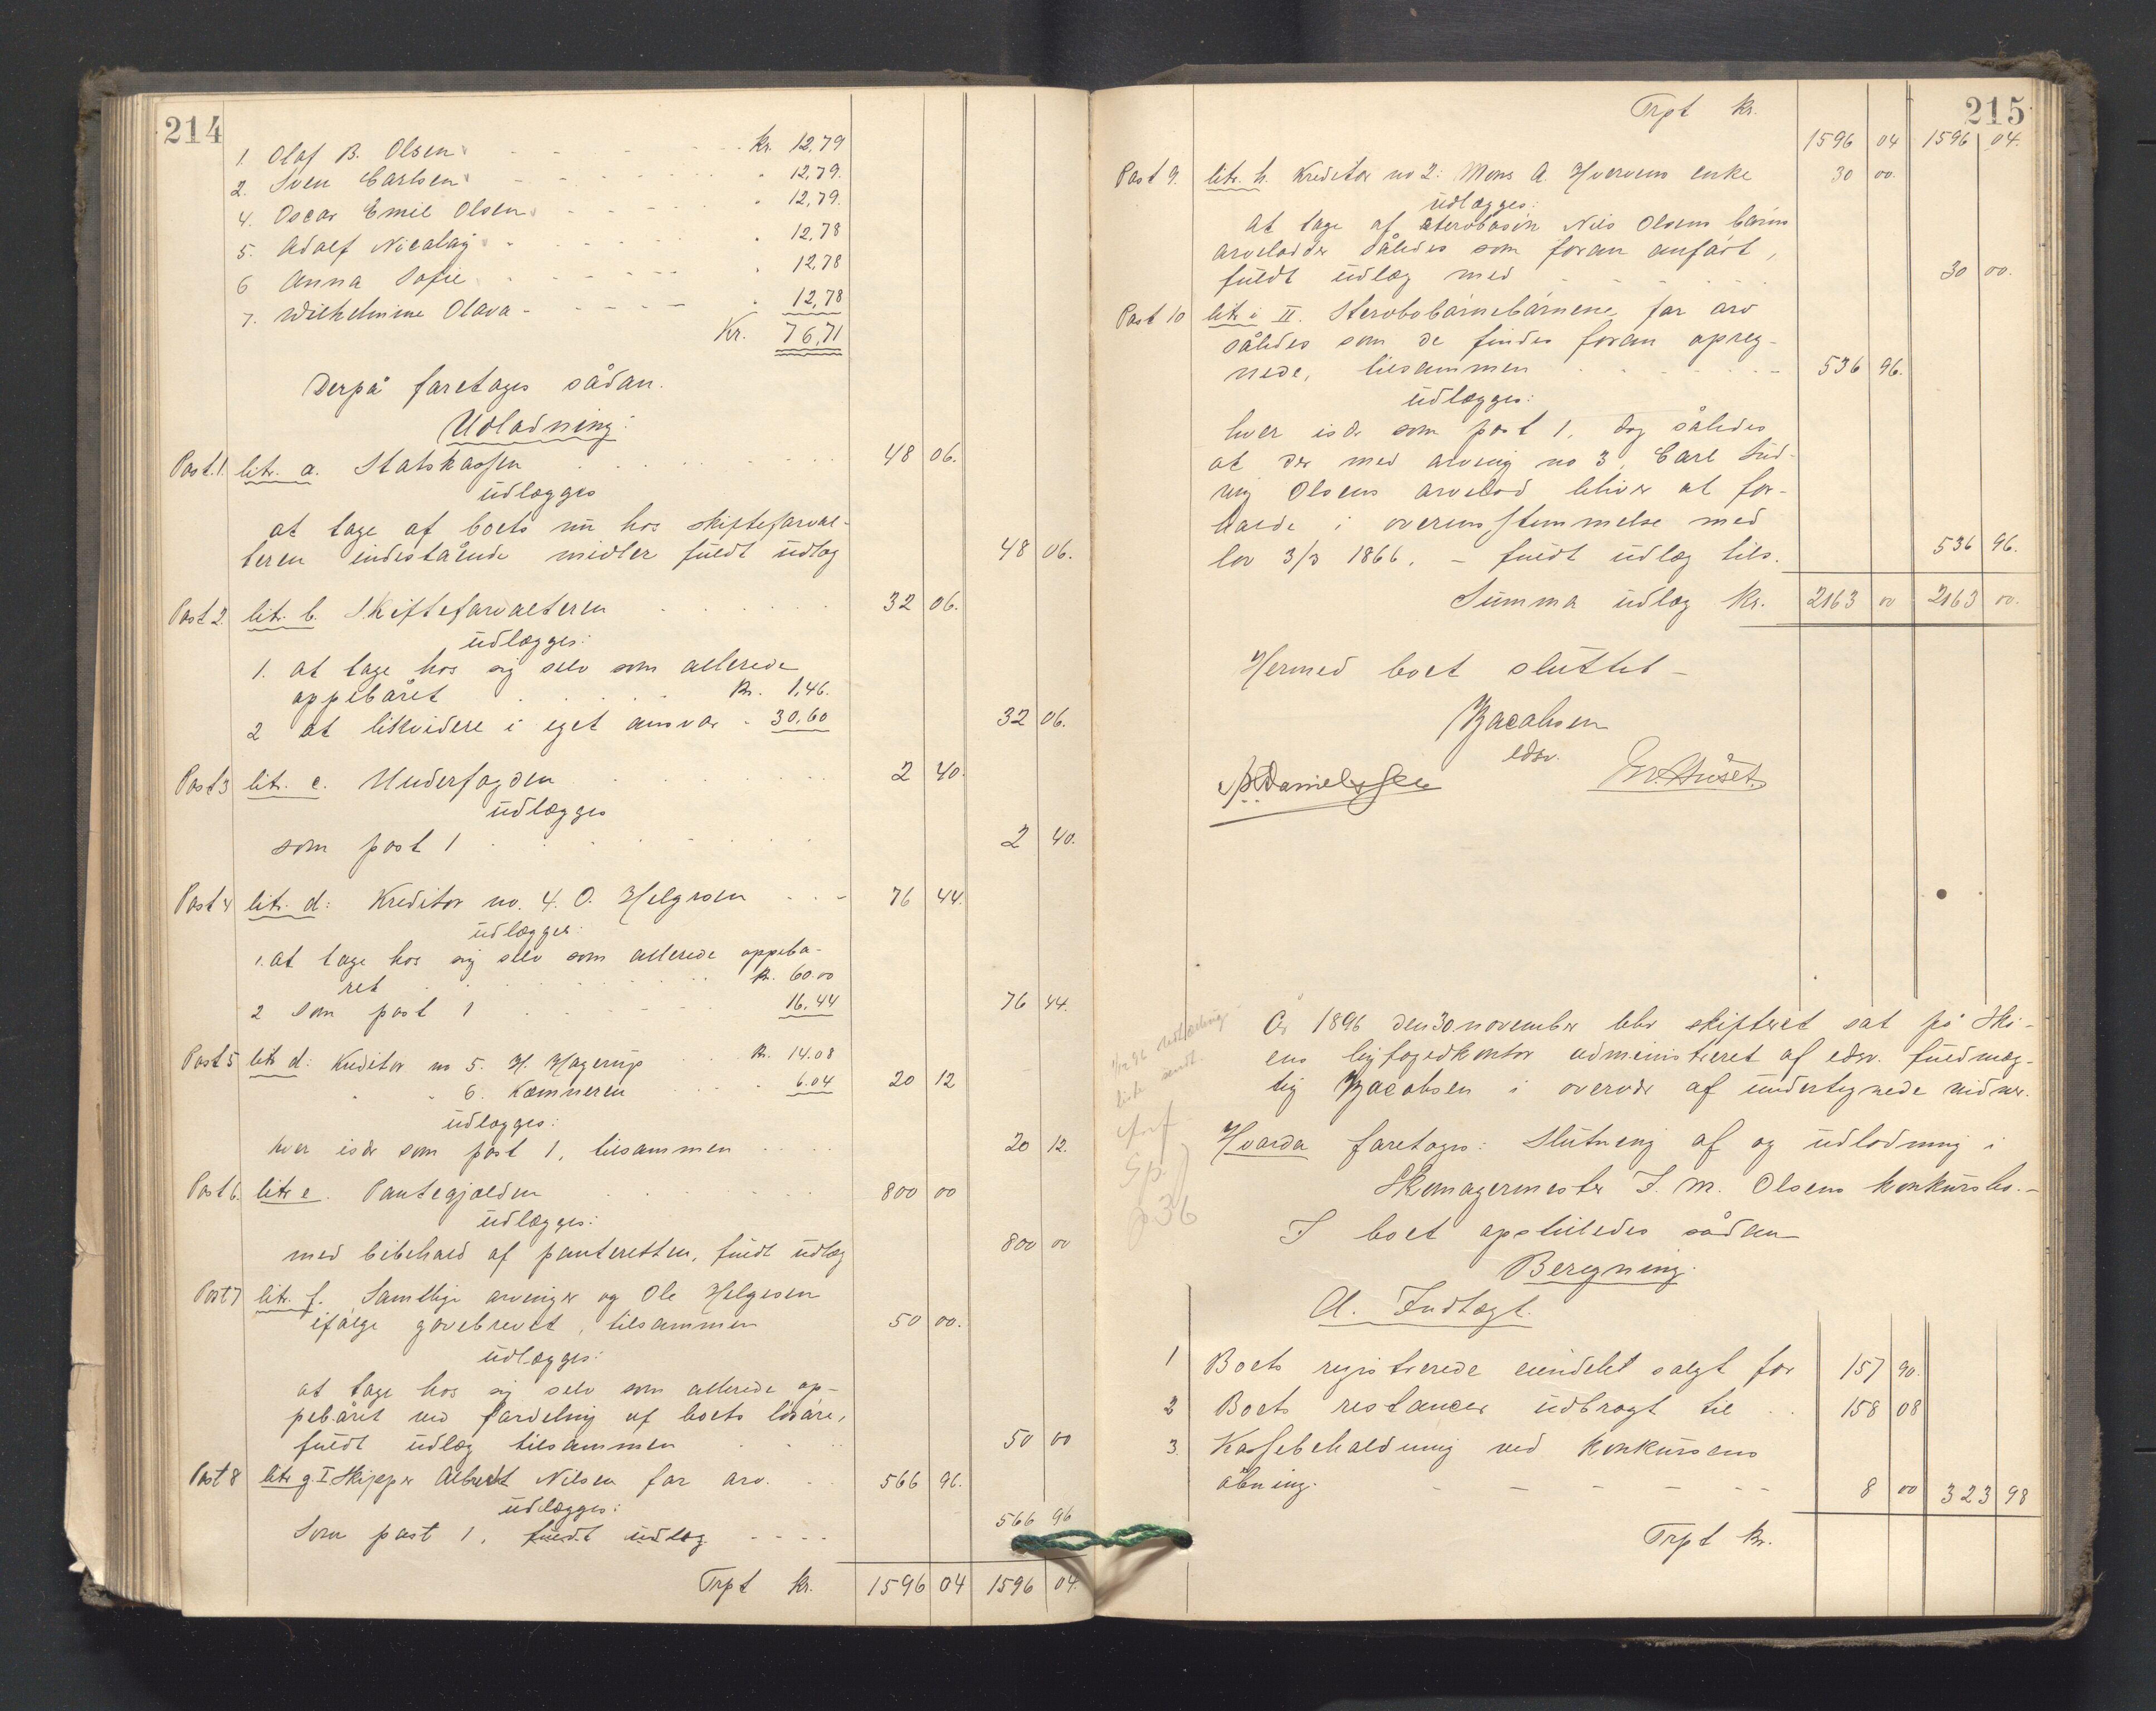 214
1. Olaf B. Olsen - - - - - kr. 12,79
2. Sven Carlsen - - - - - " 12,79.
4. Oscar Emil Olsen - - - - " 12,79.
5. Adolf Nicolay - - - - - " 12,78
6 Anna Sofie - - - - - " 12,78
7. Wilhelmine Olava - - - - " 12,78
Kr. 76,71
Derpå foretages sådan.
Udlodning:
Post.1. litr. a. Statskassen 48 06.
udlægges
at tage af boets nu hos skifteforval-
teren indestående midler fuldt udlæg 48 06.
Post 2. litr. b. Skifteforvalteren 32 06.
udlægges:
1. at tage hos sig selv som allerede
oppebåret kr. 1,46.
2 at likvidere i eget ansvar " 30,60 32 06.
Post 3 litr. c. Underfogden 2 40.
udlægges
som post 1 2 40.
Post 4 litr. d: Kreditor no. 4. O. Helgesen 76 44.
udlægges:
1. at tage hos sig selv som allerede oppebå-
ret kr. 60.00
2 som post 1 16,44 76 44.
Post 5 litr d: Kreditor no 5. H. Hagerup kr. 14.08
" " 6. Kæmneren 6.04 20 12
udlægges:
hver især som post 1, tilsammen 20 12.
Post 6. litr e. Pantegjælden 800 00
udlægges:
med bibehold af panteretten, fuldt udlæg 800 00
Post 7 litr. f. Samtlige arvinger og Ole Helgesen
ifølge gavebrevet, tilsammen 50 00.
udlægges:
at tage hos sig selv som allerede op-
pebåret ved fordeling af boets løsøre,
fuldt udlæg tilsammen 50 00
Post 8 litr g I Skipper Albert Nilsen for arv. 566 96.
udlægges:
Som post 1. fuldt udlæg - - - - 566 96
Trpt kr. 1596 04 1596 04.
215
Trpt kr. 1596 04 1596 04.
Post 9. litr. h. Kreditor no 2: Mons A. enke 30 00.
udlægges:
At tage af sterbbosøn Nils Olsens børns
arvelodder således som foran anført,
fuldt udlæg med 30 00.
Post 10 litr i II. Stervbobørnebørnene for arv
således som de findes foran opreg-
nede, tilsammen 536 96.
udlægges:
hver især som post 1, dog således
at der med arving no 3, Carl Lud-
vig Olsens arvelod bliver at for-
holde i overensstemmelse med
lov 3/3 1866. - fuldt udlæg tils. 536 96.
Summa udlæg kr. 2163 00 2163 00.
Hermed boet sluttet -
Jacobsen
edsv.
Danielssen
År 1896 den 30. november blev skifteret sat på Ski-
ens byfogedkontor administreret af edsv. fuldmæg-
tig Jacobsen i overvær af undertegnede vidner.
Hvorda foretoges: Slutning af og udlodning i
Skomagermester J. M. Olsens konkursbo. -
I boet opstilledes sådan
Beregning.
A. Indtægt.
1 Boets registrerede eiendele solgt for 157 90.
2 Boets restancer udbragt til . . 158 08
3. Kassebeholdning ved konkursens
åbning. - - - - - - 8 00 323 98
Trpt kr.